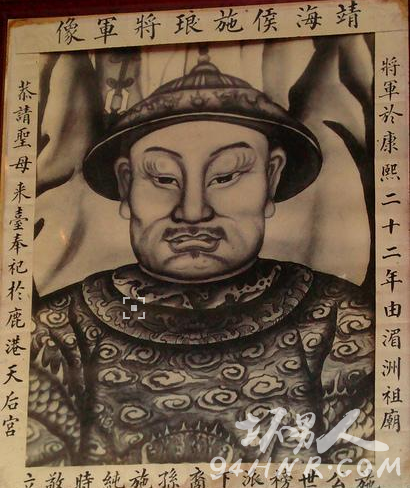 靖海侯施琅將軍像
將軍於康熙二十二年由湄洲祖廟
恭請聖母来臺奉祀於鹿港天后宮
施公世榜派下裔孫施純時敬立
坏男人
94HNR.COM